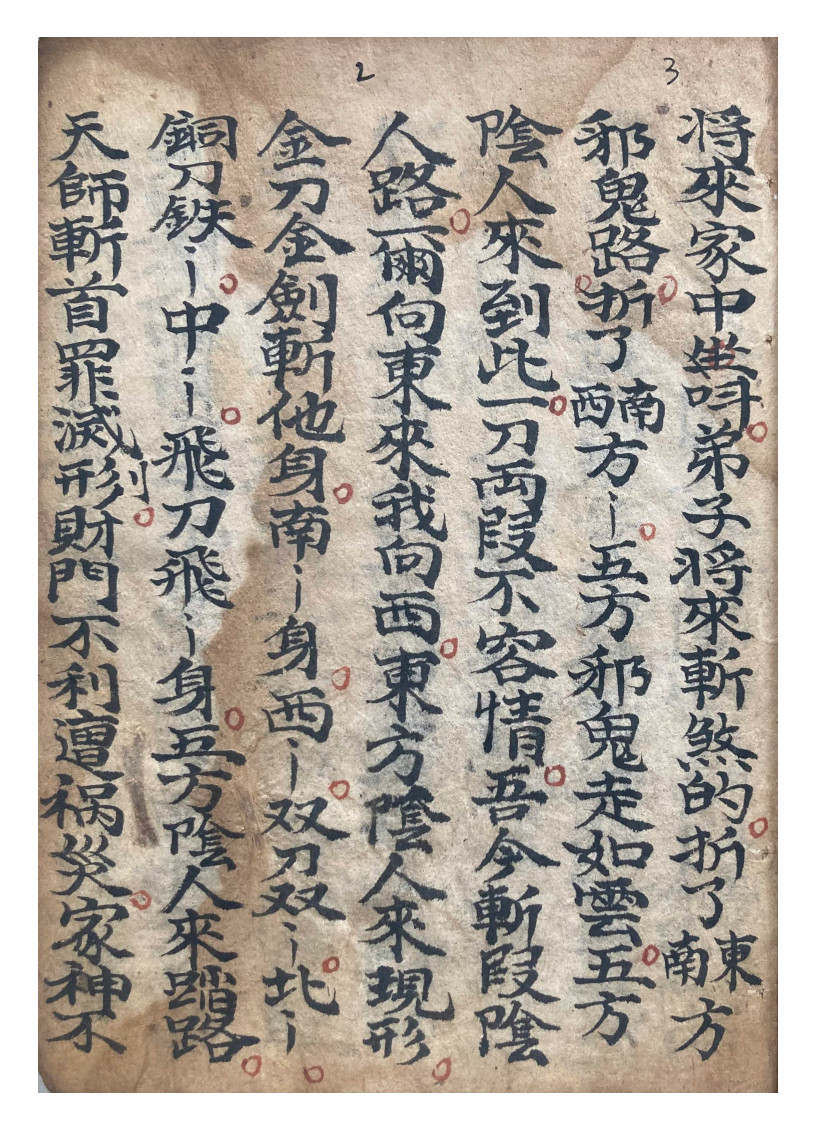 3
2
将來家中坐呌弟子将來斬煞的折了東南方
邪鬼路折了南西方〻五方邪鬼走如雲五方
陰人來到此一刀両段不容情吾今斬段陰
人路一爾向東來我向西東方陰人來現形
金刀金劍斬他身南〻身西〻双刀双〻北〻
銅刀鉄〻中〻飛刀飛〻身五方陰人來踏路
天師斬首罪滅形財門不利遭祸災家神不